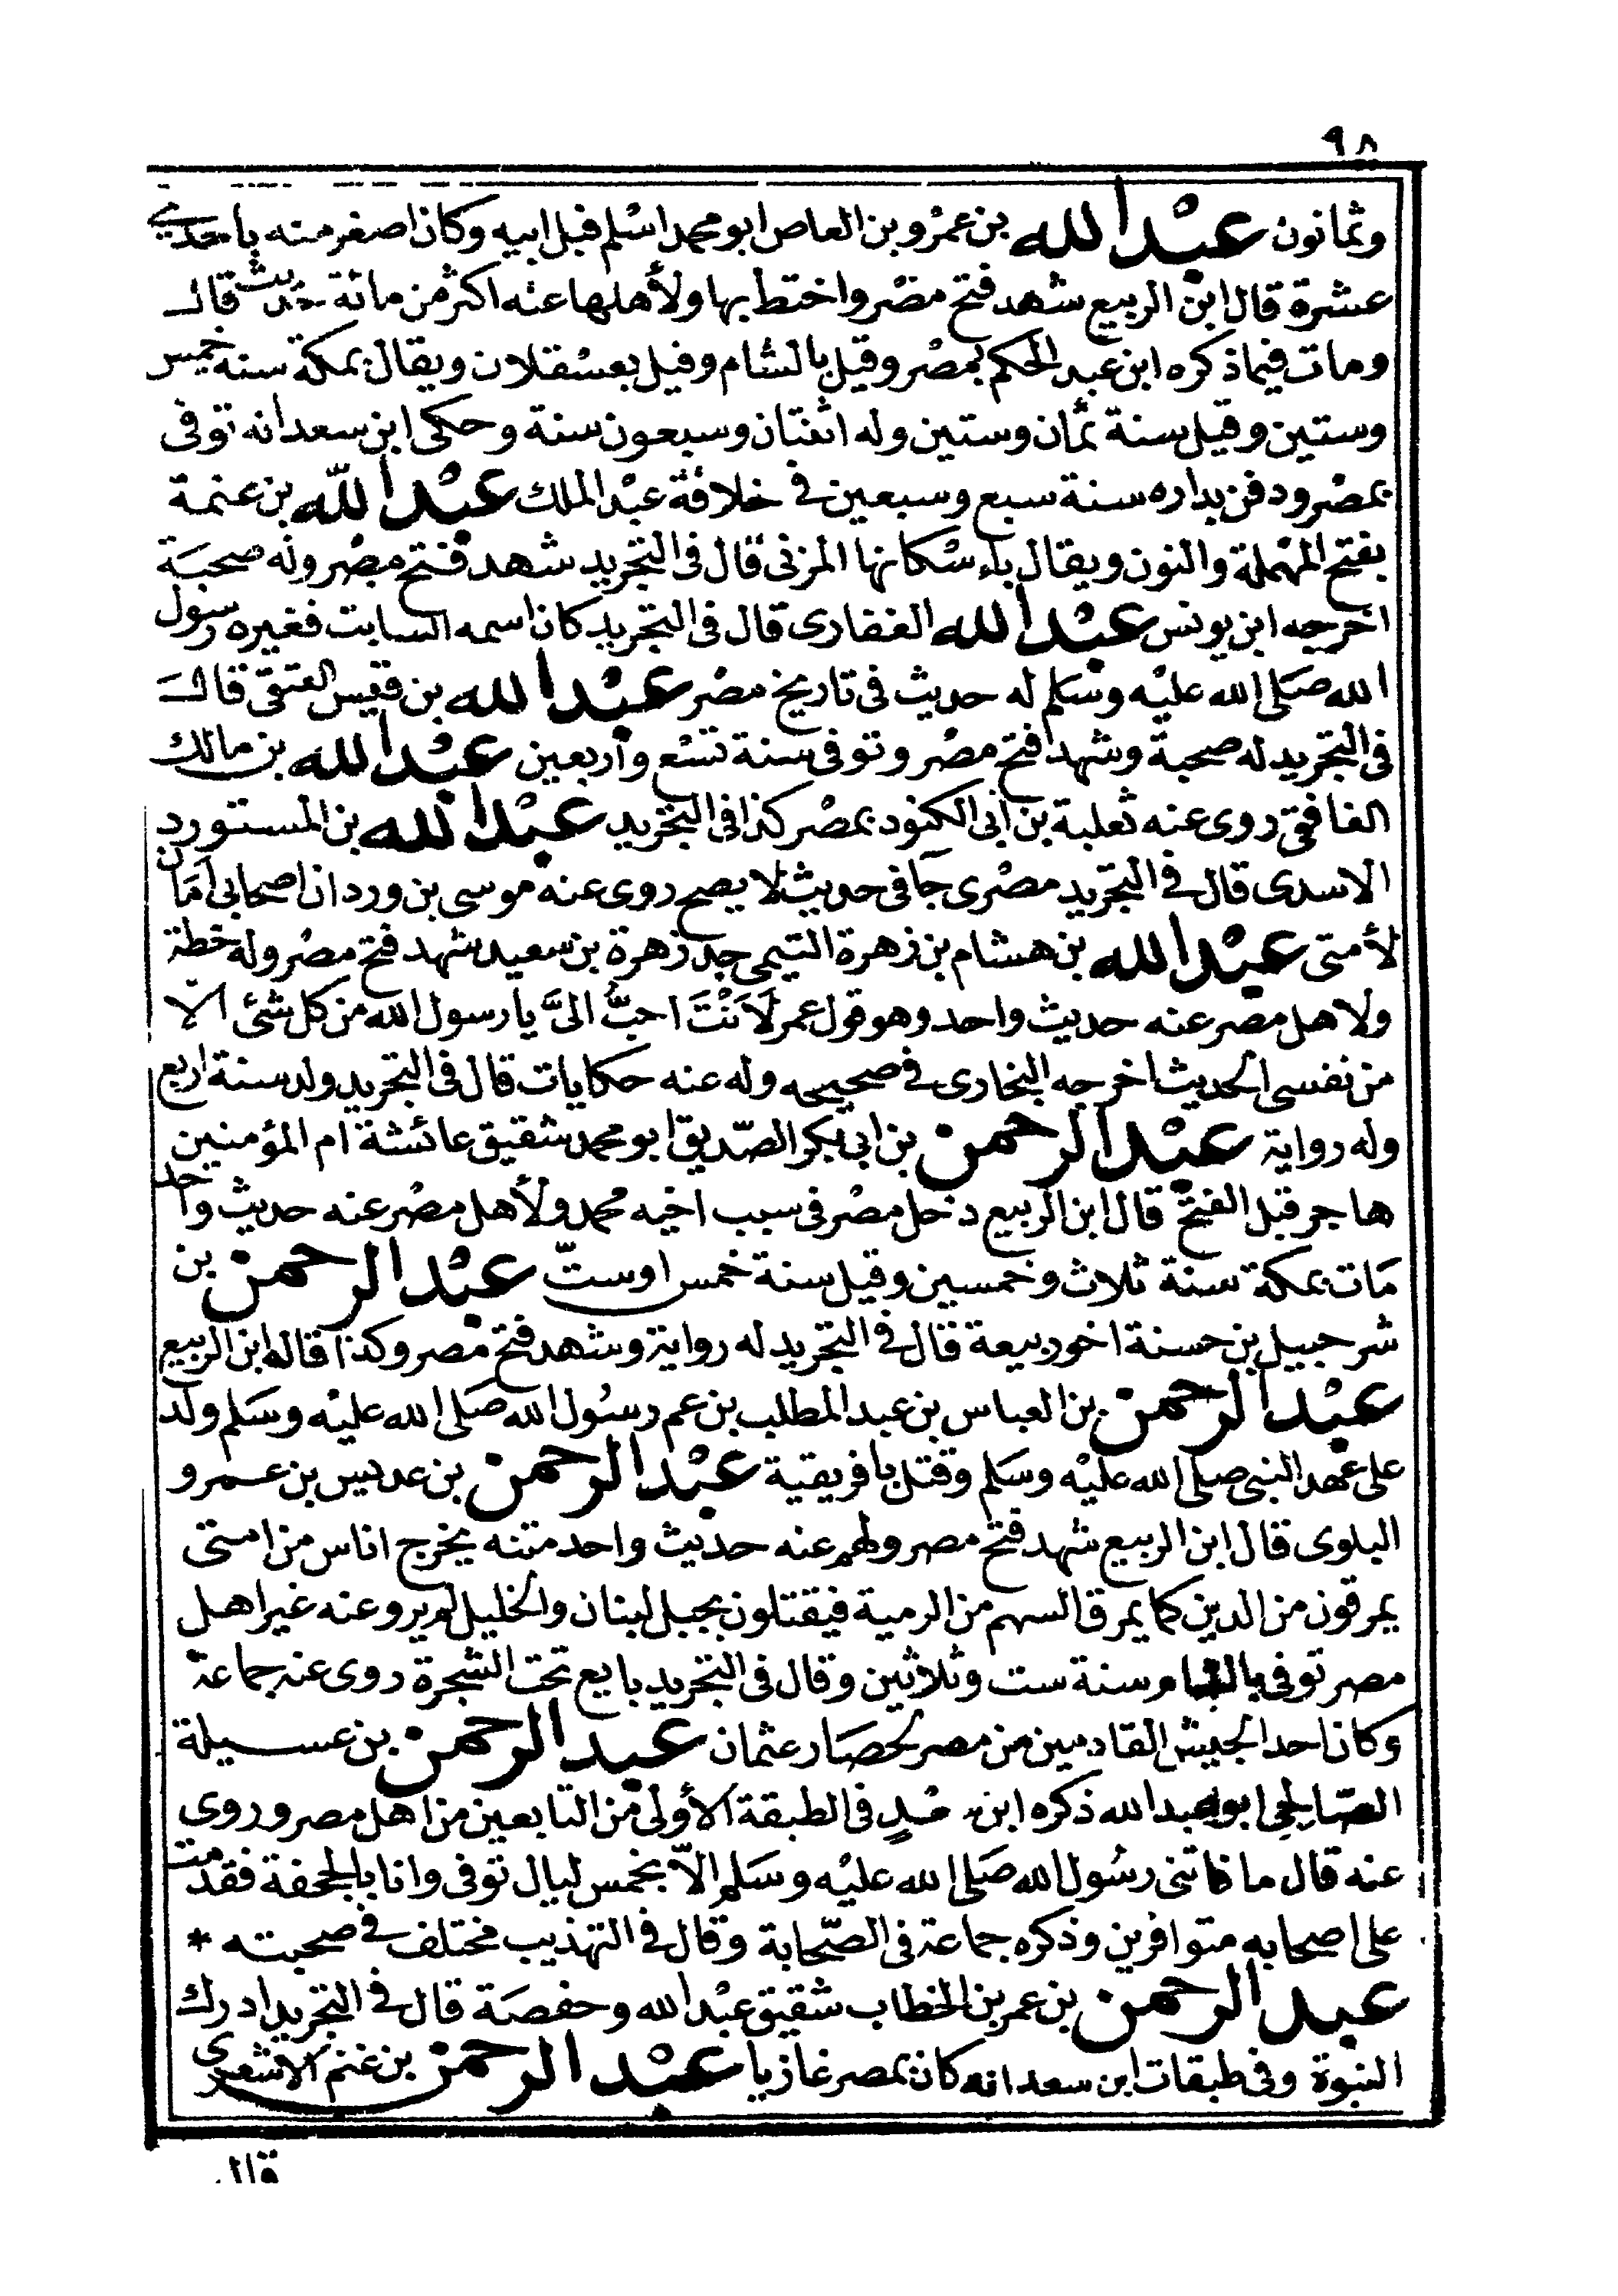 ٩٨
وثمانون عبد الله بن عمرو بن العاص ابو محمد اسلم قبل ابيه وكان اصغر منه باحدى
عشرة قال ابن الربيع شهد فتح مصر واختط بها ولأهلها عنه اكثر من مائة حديث قال
ومات فيما ذكره ابن عبد الحكم بمصر وقيل بالشام وقيل بعسقلان ويقال بمكة سنة خمس
وستين وقيل سنة ثمان وستين وله اثنتان وسبعون سنة وحكى ابن سعد انه توفى
بمصر ودفن بداره سنة سبع وسبعين فى خلافة عبد الملك عبد الله بن عنمة
بفتح المهملة والنون ويقال باسكانها المزنى قال فى التجريد شهد فتح مصر وله صحبة
اخرجه ابن يونس عبد الله الغفارى قال فى التجريد كان اسمه السابت فغيره رسول
الله صلى الله عليه وسلم له حديث فى تاريخ مصر عبد الله بن قيس العتقى قال
فى التجريد له صحبة وشهد فتح مصر وتوفى سنة تسع واربعين عبد الله بن مالك
الغافقى روى عنه ثعلبة بن ابى الكنود بمصر كذا فى التجريد عبد الله بن المستورد
الاسدى قال فى التجريد مصرى جا فى حديث لا يصح روى عنه موسى بن وردان اصحابى امان
لأمتى عبد الله بن هشام بن زهرة التيمى جد زهرة بن سعيد شهد فتح مصر وله خطة
ولاهل مصر عنه حديث واحد وهو قول عمر لَاَنْتَ احبُّ الىَّ يا رسول الله من كل شئ الا
من نفسى الحديث اخرجه البخارى فى صحيحه وله عنه حكايات قال فى التجريد ولد سنة اربع
وله رواية عبد الرحمن بن ابى بكر الصدّيق ابو محمد شقيق عائشة ام المؤمنين
هاجر قبل الفتح قال ابن الربيع دخل مصر فى سبب اخيه محمد ولأهل مصر عنه حديث واحد
مات بمكة سنة ثلاث وخمسين وقيل سنة خمس او ستّ عبد الرحمن بن
شرحبيل بن حسنة اخو ربيعة قال فى التجريد له رواية وشهد فتح مصر وكذا قاله ابن الربيع
عبد الرحمن بن العباس بن عبد المطلب بن عم رسول الله صلى الله عليه وسلم ولد
على عهد النبى صلى الله عليه وسلم وقتل بافريقية عبد الرحمن بن عديس بن عمرو
البلوى قال ابن الربيع شهد فتح مصر ولهم عنه حديث واحد متنه يخرج اناس من امتى
يمرقون من الدين كما يمرق السهم من الرمية فيقتلون بجبل لبنان والخليل لم يرو عنه غير اهل
مصر توفى بالشام سنة ست وثلاثين وقال فى التجريد بايع تحت الشجرة روى عنه جماعة
وكان احد الجيش القادمين من مصر لحصار عثمان عبد الرحمن بن عسيلة
الصنابحى ابو عبد الله ذكره ابن سعد فى الطبقة الأولى من التابعين من اهل مصر وروى
عنه قال ما فاتنى رسول الله صلى الله عليه وسلم الاّ بخمس ليال توفى وانا بالجحفة فقدمت
على اصحابه متوافرين وذكره جماعة فى الصّحابة وقال فى التهذيب مختلف فى صحبته *
عبد الرحمن بن عمر بن الخطاب شقيق عبد الله وحفصة قال فى التجريد ادرك
النبوة وفى طبقات ابن سعد انه كان بمصر غازيا عبد الرحمن بن غنم الاشعرى
قال